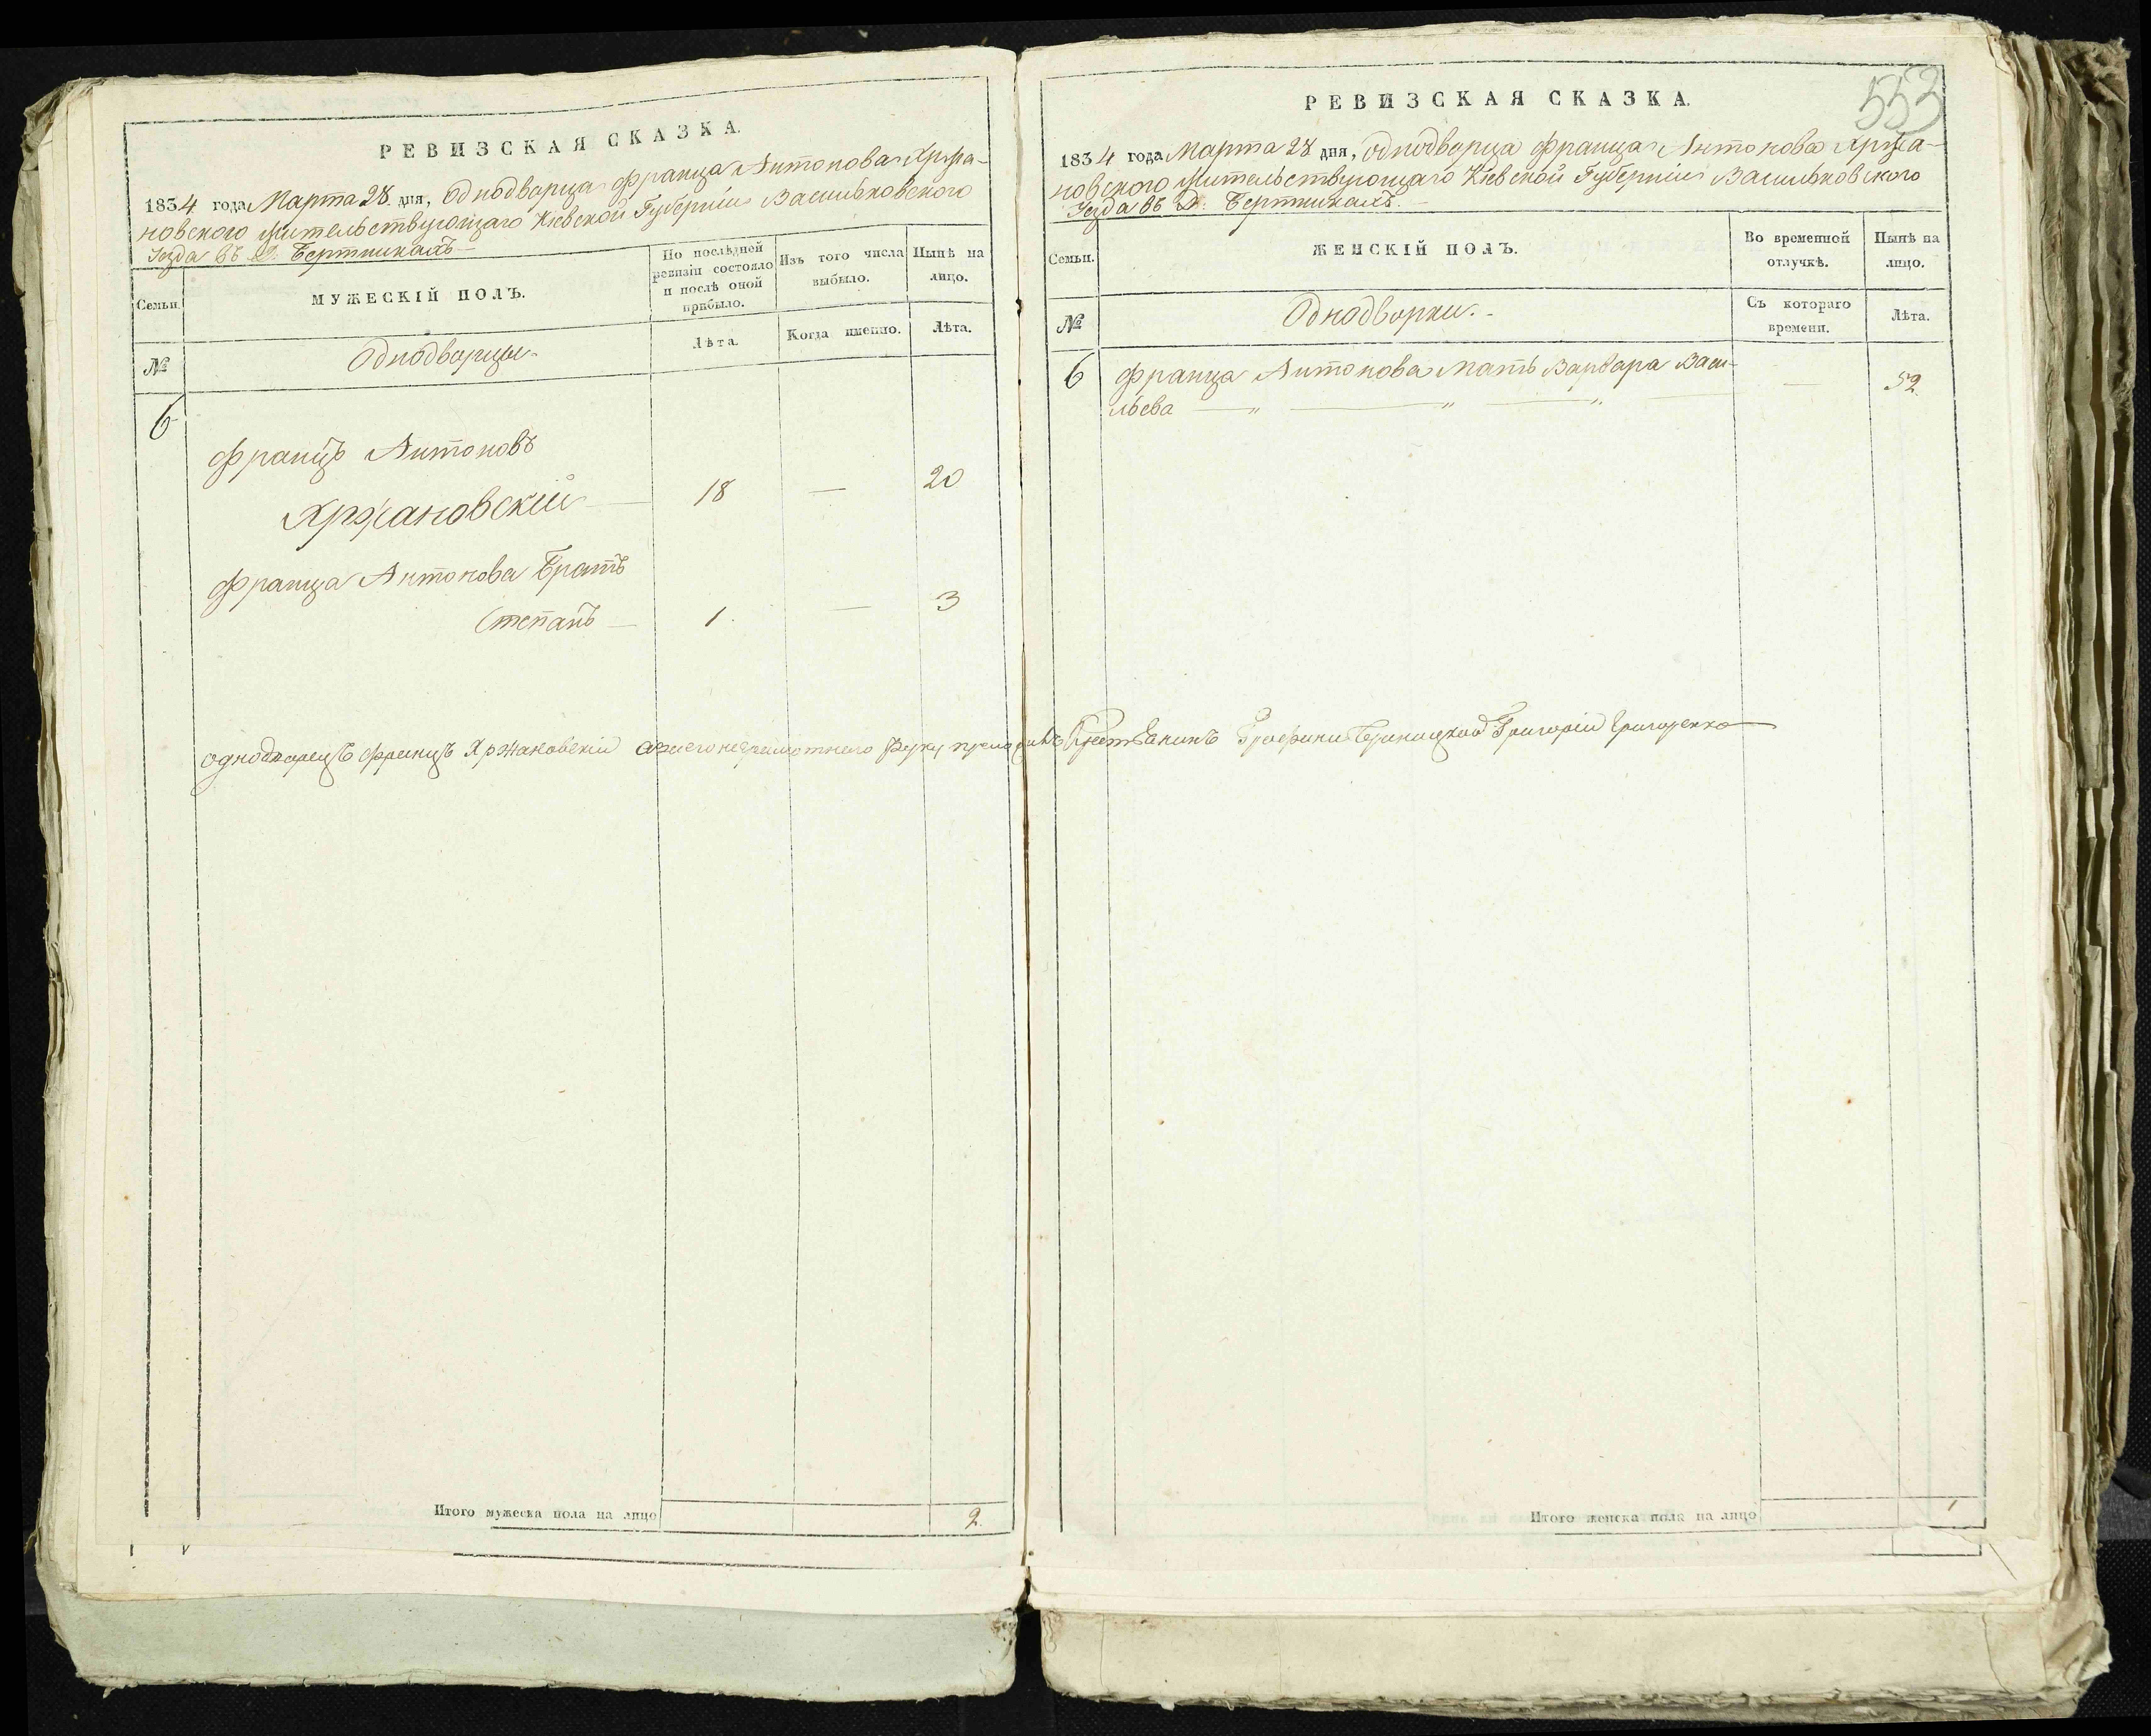 РЕВИЗСКАЯ СКАЗКА.
1834 года Марта 28 дня, Однодворца Франца Антонова Хржа-
новского жительствующаго Кіевской Губерніи Васильковского
Уезда въ Д. Бертникахъ
Семьи.
МУЖЕСКІЙ ПОЛЪ.
По послѣдней ревизіи состояло и послѣ оной прибыло.
Изъ того числа выбыло.
Нынѣ на лицо.
№
Однодворцы.
Лѣта.
Когда именно.
Лѣта.
6
Францъ Антоновъ
Хржановскій — 18 — 20
Франца Антонова Братъ
Степанъ — 1. — 3
однодворецъ Францъ Хржановскій а за его неграмотнаго руку приложилъ Крестьянинъ Графини Браницкой Григорій Григоренко
Итого мужеска пола на лицо 2.
553
РЕВИЗСКАЯ СКАЗКА.
1834 года Марта 28 дня, Однодворца Франца Антонова Хржа-
новского жительствующаго Кіевской Губерніи Васильковского
Уезда въ Д. Бертникахъ.
Семьи.
ЖЕНСКІЙ ПОЛЪ.
Во временной отлучкѣ.
Нынѣ на лицо.
№
Однодворки.
Съ котораго времени.
Лѣта.
6 Франца Антонова мать Варвара Васи- — 52
льева — „ — „ — „ —
Итого женска пола на лицо 1